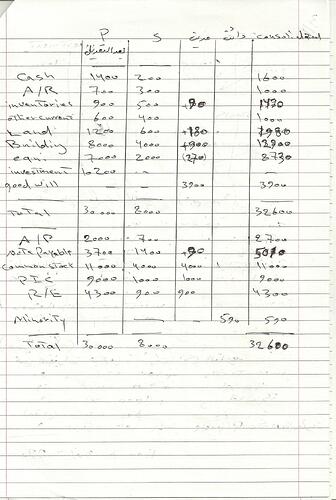 P S مدينة دائنة consolidated
بعد التعديل
Cash 1400 200 1600
A/R 700 300 1000
inventories 900 500 +90 1490
other current 600 400 1000
Land 1200 600 +180 1980
Building 8000 4000 +900 12900
equi. 7000 2000 (270) 8730
investment 10200 - -
good will - - 3900 3900
Total 30.000 8000 32600
A/P 2000 700 2700
note payable 3700 1400 +90 5010
common stock 11000 4000 4000 11000
PIC 9000 1000 1000 9000
R/E 4300 900 900 4300
Minority - - 590 590
Total 30.000 8000 32600